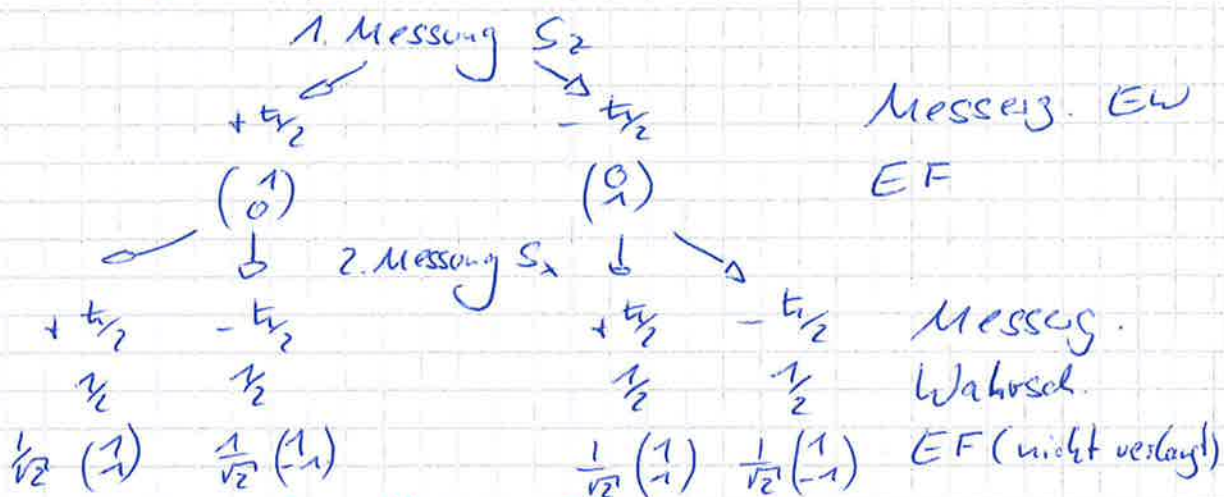 1. Messung Sz
+ ħ/2 - ħ/2 Messerg. EW
(1 0) (0 1) EF
2. Messung Sx
+ ħ/2 - ħ/2 + ħ/2 - ħ/2 Messerg.
1/2 1/2 1/2 1/2 Wahrsch.
1/√2 (1 1) 1/√2 (1 -1) 1/√2 (1 1) 1/√2 (1 -1) EF (nicht verlangt)